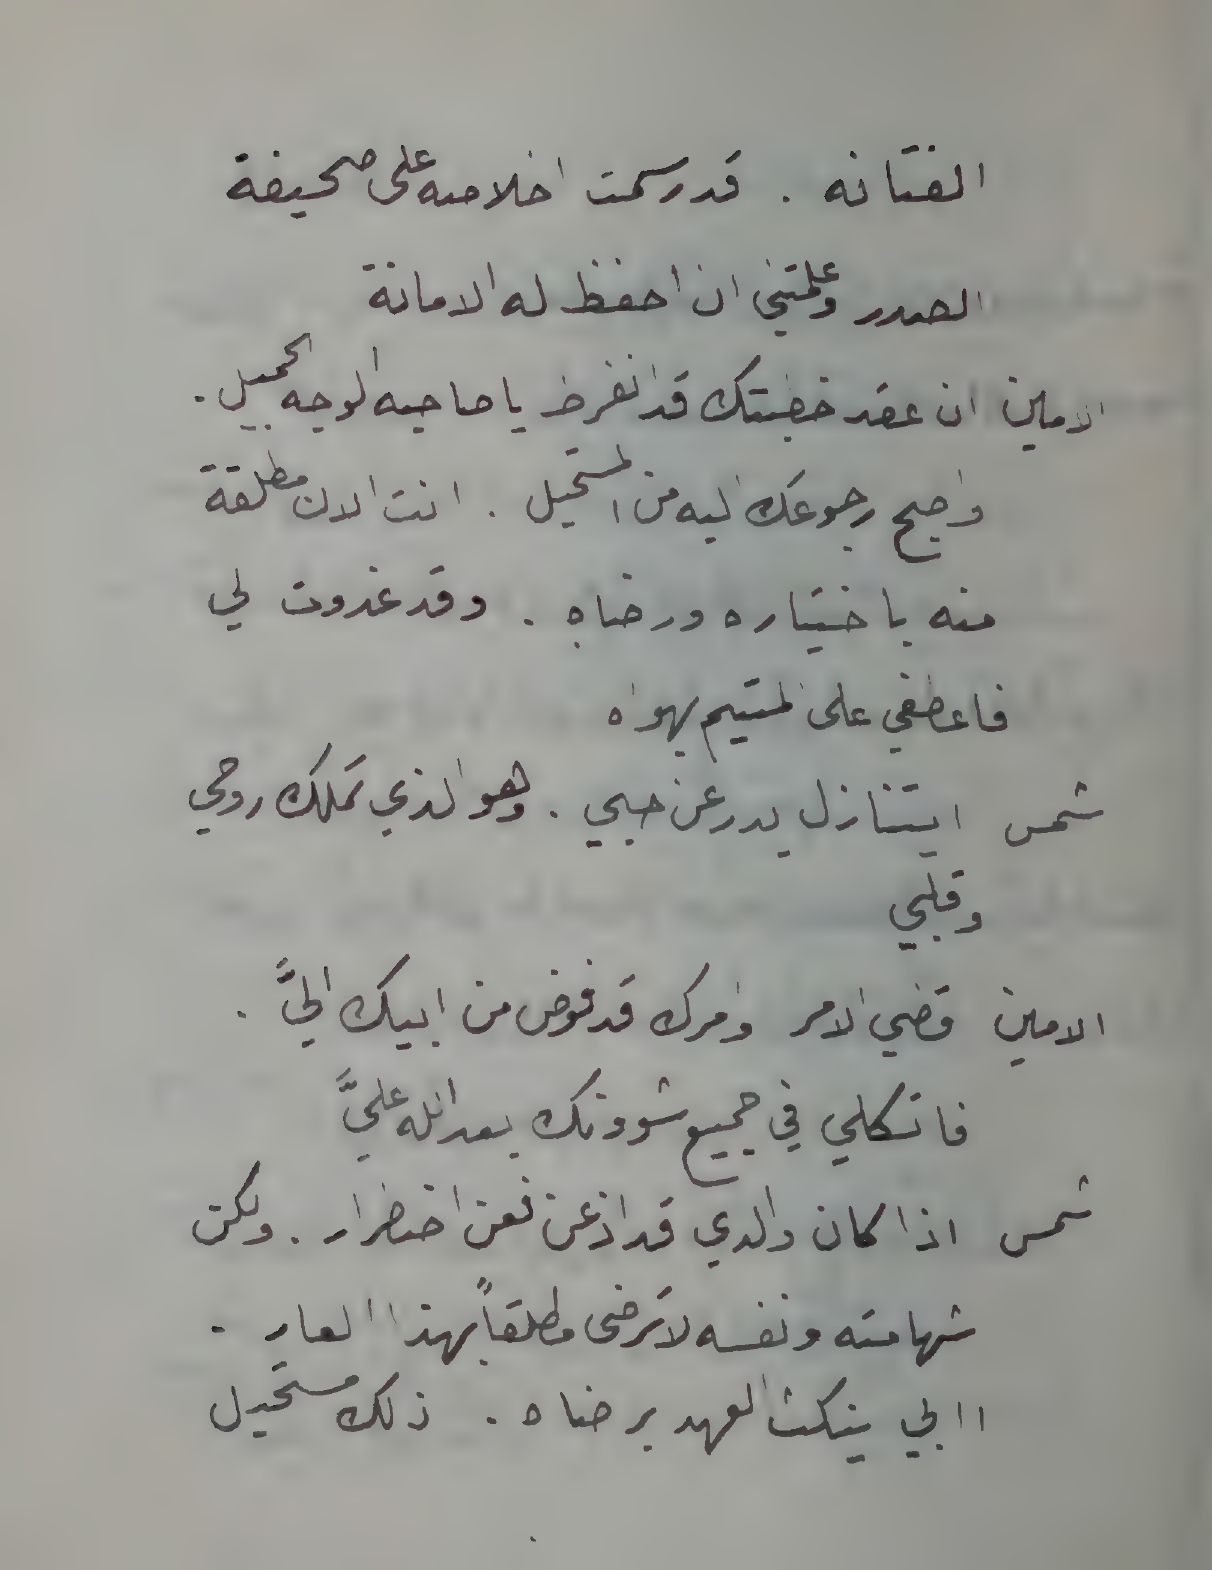 الفتانه . قد رسمت اخلاصه على صحيفة
الصدر وعلمتني ان احفظ له الامانة
الامين ان عقد خطبتك قد انفرط يا صاحبه الوجه الجميل .
واصبح رجوعك اليه من المستحيل . انت الان مطلقة
منه باختياره ورضاه . وقد غدوت لي
فاعطفي على المتيم بهواه
شمس ايتنازل بدر عن حبي . وهو الذي تملك روحي
وقلبي
الامين قضي الامر وامرك قد فوض من ابيك اليَّ .
فاتكلي في جميع شوونك بعد الله عليَّ
شمس اذا كان والدي قد اذعن فعن اضطرار . ولكن
شهامته ونفسه لا ترضى مطلقاً بهذا العار .
ا ابي ينكث العهد برضاه . ذلك مستحيل